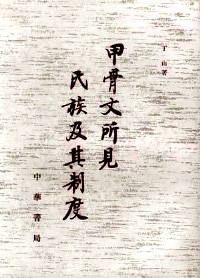 丁山著
甲骨文所見
民族及其制度
中華書局